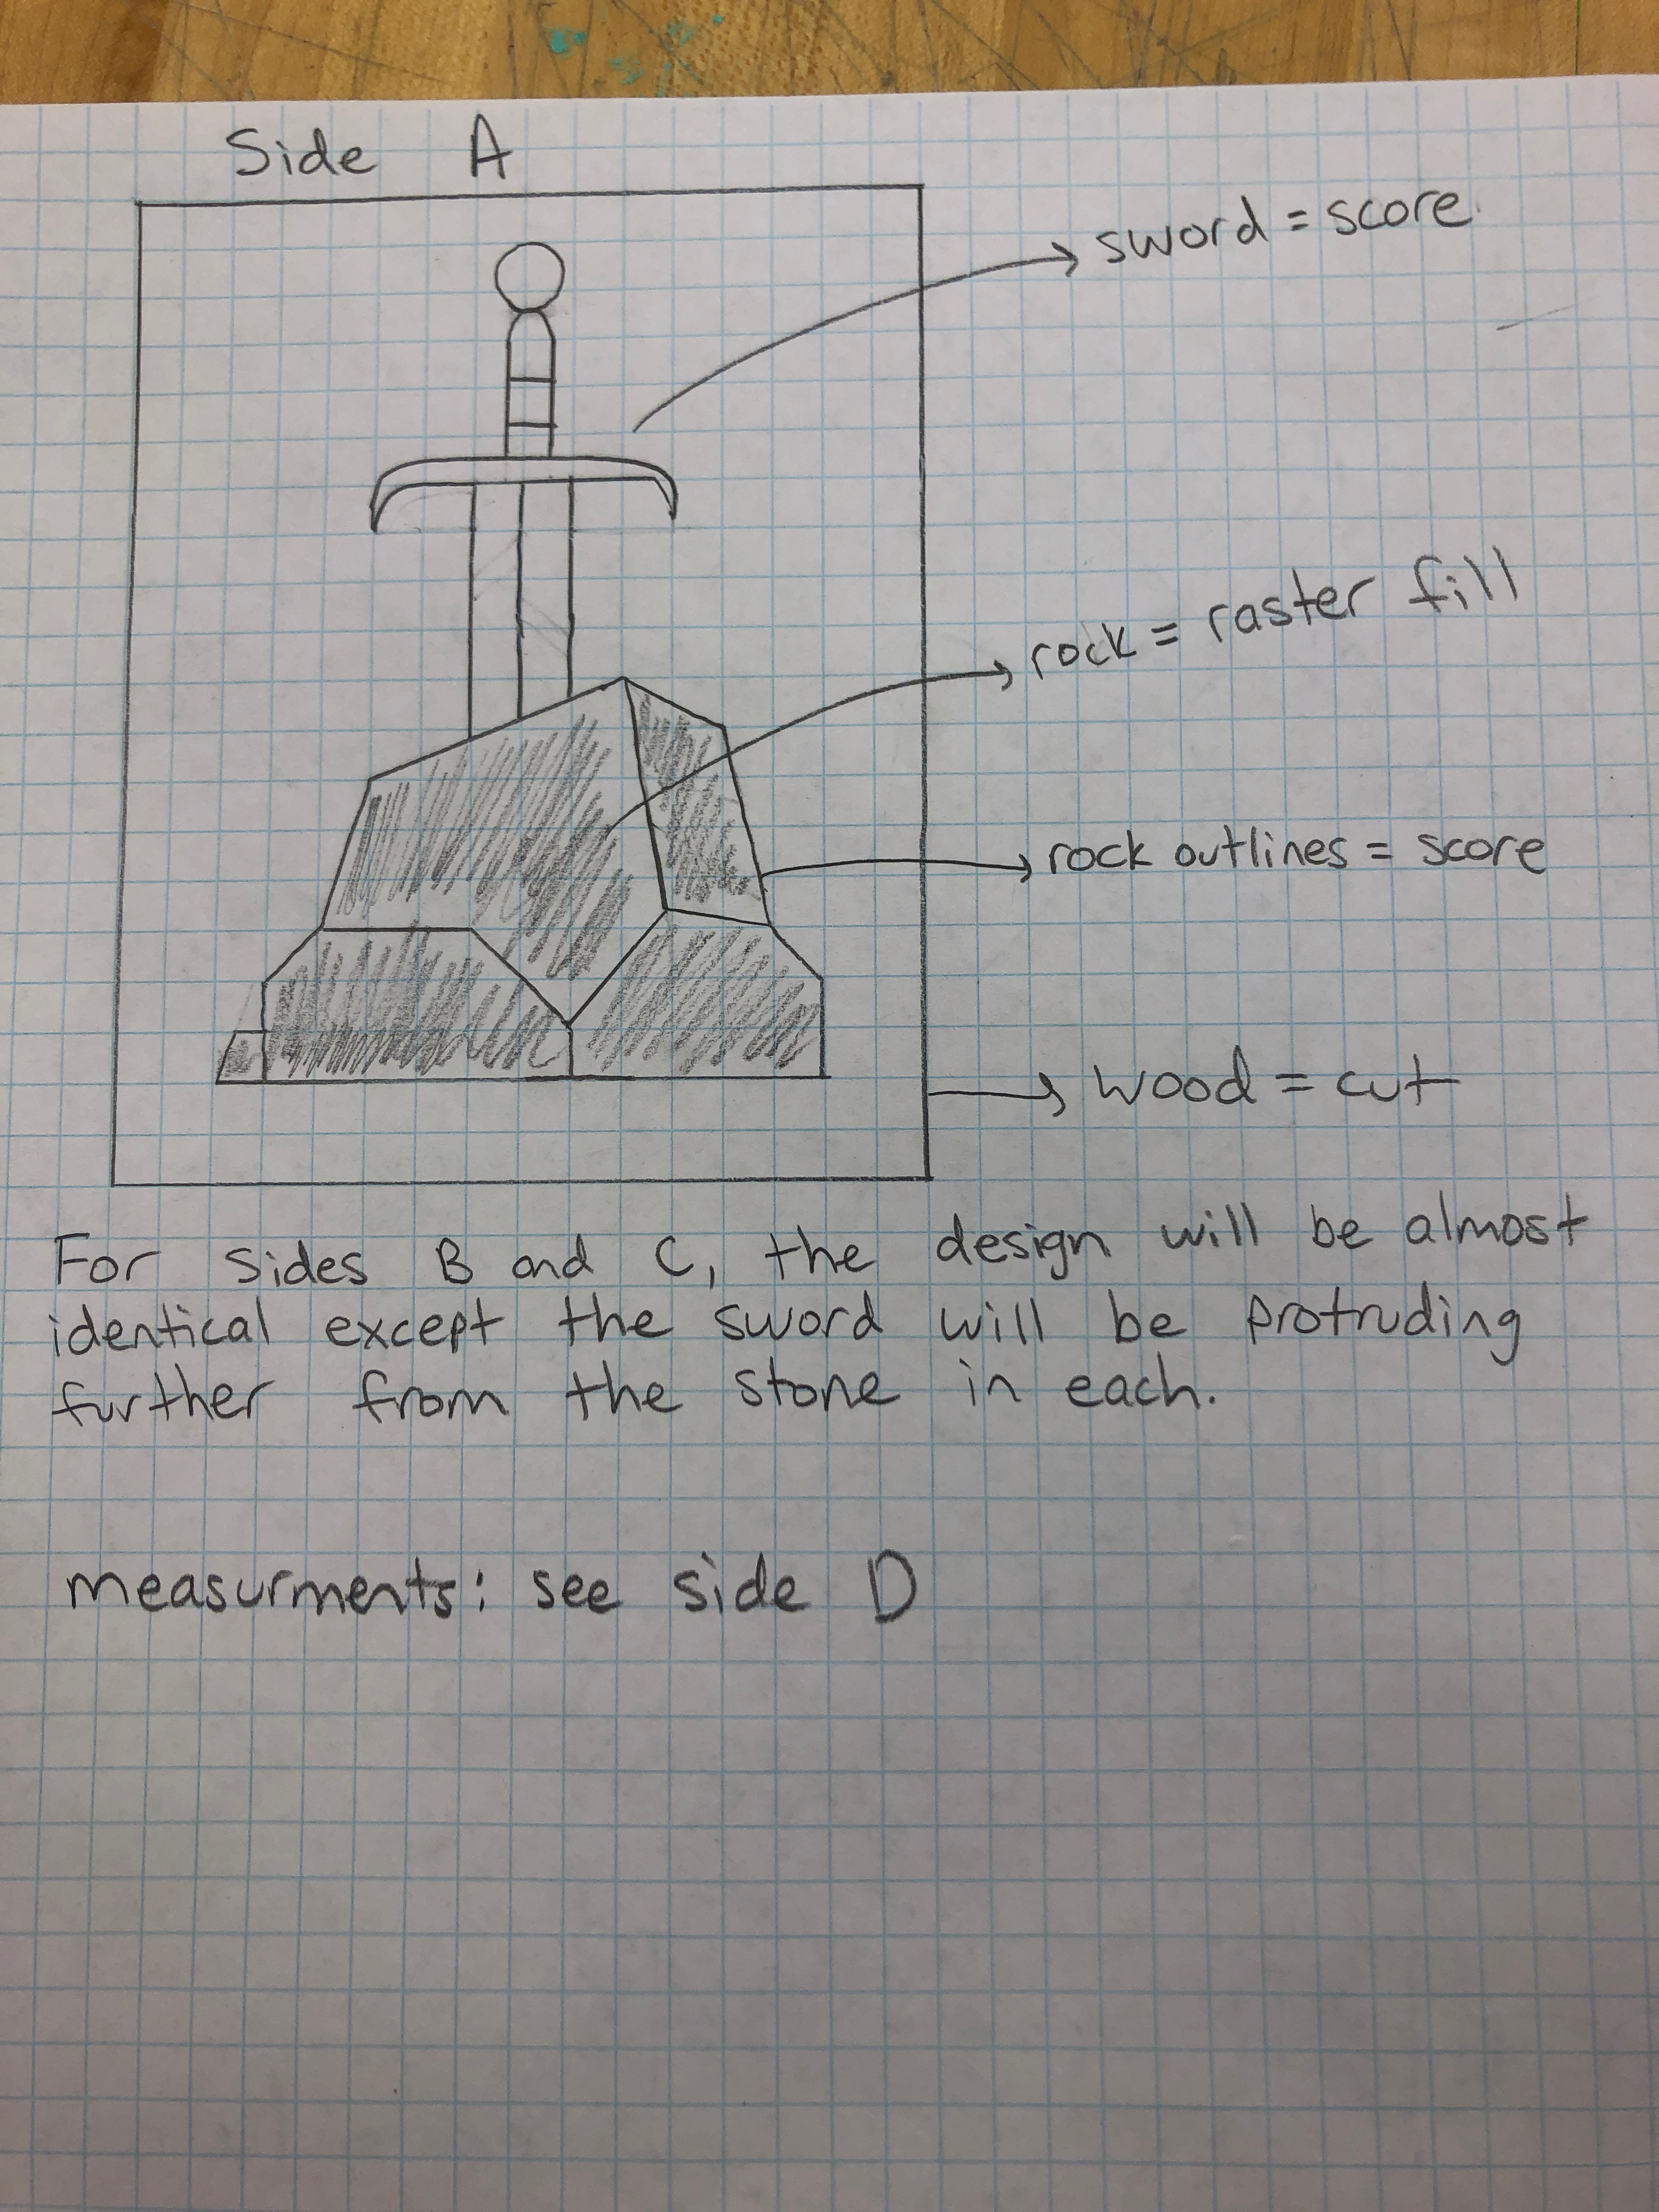 Side A
sword = score
rock = raster fill
rock outlines = score
wood = cut
For sides B and C, the design will be almost
identical except the sword will be protruding
further from the stone in each.
measurments: see side D